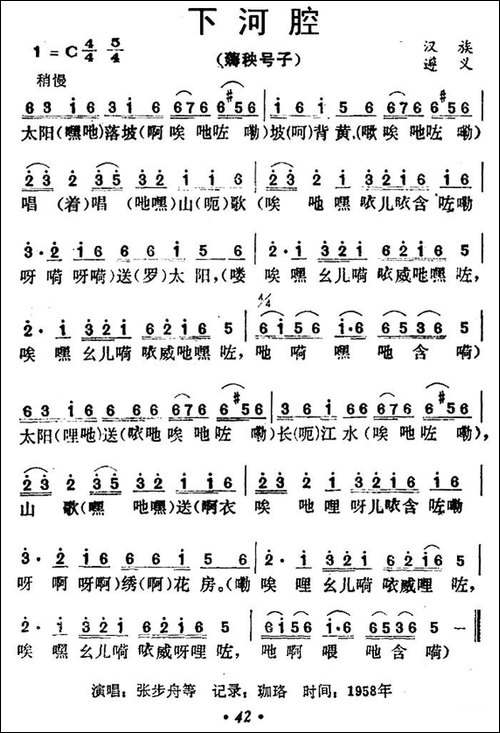 下河腔
1=C 4/4 5/4 (薅秧号子) 汉族
稍慢 遵义
63 i6 3i 56 676 6#56 | i6 i i5 6 676 6#56
太阳(嘿吔)落坡(啊 唉 吔咗 嘞)坡(呵)背黄,(噉 唉 吔咗 嘞)
23 2 35 32 i i i6 | 23 2 i 3216 2i6
唱 (着)唱 (吔嘿)山(呃)歌 (唉 吔嘿 咴儿咴含 咗嘞
3·2 i6 66 6i 5 6 | 2·i 3216 62i65
呀 嗬 呀嗬)送(罗)太 阳,(喽 唉嘿 幺儿嗬 咴威吔嘿 咗,
2· i 3 2 2 i 6 2 i 6 5 | 4/4 6i56 i·6 6536 5
唉 嘿 幺儿嗬 咴威吔嘿 咗, 吔 嗬 嘿 吔含 嗬)
63 i6 66 66 676 6#56 | 36 i 66 676 6#56
太阳(哩吔)送(咴吔 唉 吔咗 嘞)长(呃)江水(唉 吔咗 嘞),
23 2 35 32 i i i6 | 23 2 i 3216 2i6
山 歌(嘿 吔嘿)送(啊衣 唉 吔哩 呀儿咴含 咗嘞
3·2 i6 66 6i 5 6 | 2·i 3216 62i65
呀 啊 呀啊)绣(啊)花 房。(嘞 唉 哩 幺儿嗬 咴威哩 咗,
2· i 3221 62i6 5 | 6i56 i·6 656 6 - ‖
唉 嘿 幺儿嗬 咴威呀哩 咗, 吔 啊 喂 吔含 嗬)
演唱:张步舟等 记录:珈珞 时间:1958年
·42·